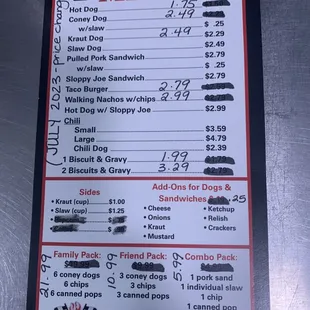 (JULY 2023-price chang
Hot Dog 1.75
Coney Dog 2.49
w/slaw $ .25
Kraut Dog 2.49 $2.29
Slaw Dog $2.49
Pulled Pork Sandwich $2.79
w/slaw $ .25
Sloppy Joe Sandwich $2.79
Taco Burger 2.79
Walking Nachos w/chips 2.99
Hot Dog w/ Sloppy Joe $2.99
Chili
Small $3.59
Large $4.79
Chili Dog $2.39
1 Biscuit & Gravy 1.99
2 Biscuits & Gravy 3.29
Sides
• Kraut (cup) $1.00
• Slaw (cup) $1.25
Add-Ons for Dogs &
Sandwiches .25
• Cheese
• Onions
• Kraut
• Mustard
• Ketchup
• Relish
• Crackers
Family Pack:
21.99
6 coney dogs
6 chips
6 canned pops
Friend Pack:
10.99
3 coney dogs
3 chips
3 canned pops
Combo Pack:
5.99
1 pork sand
1 individual slaw
1 chip
1 canned pop